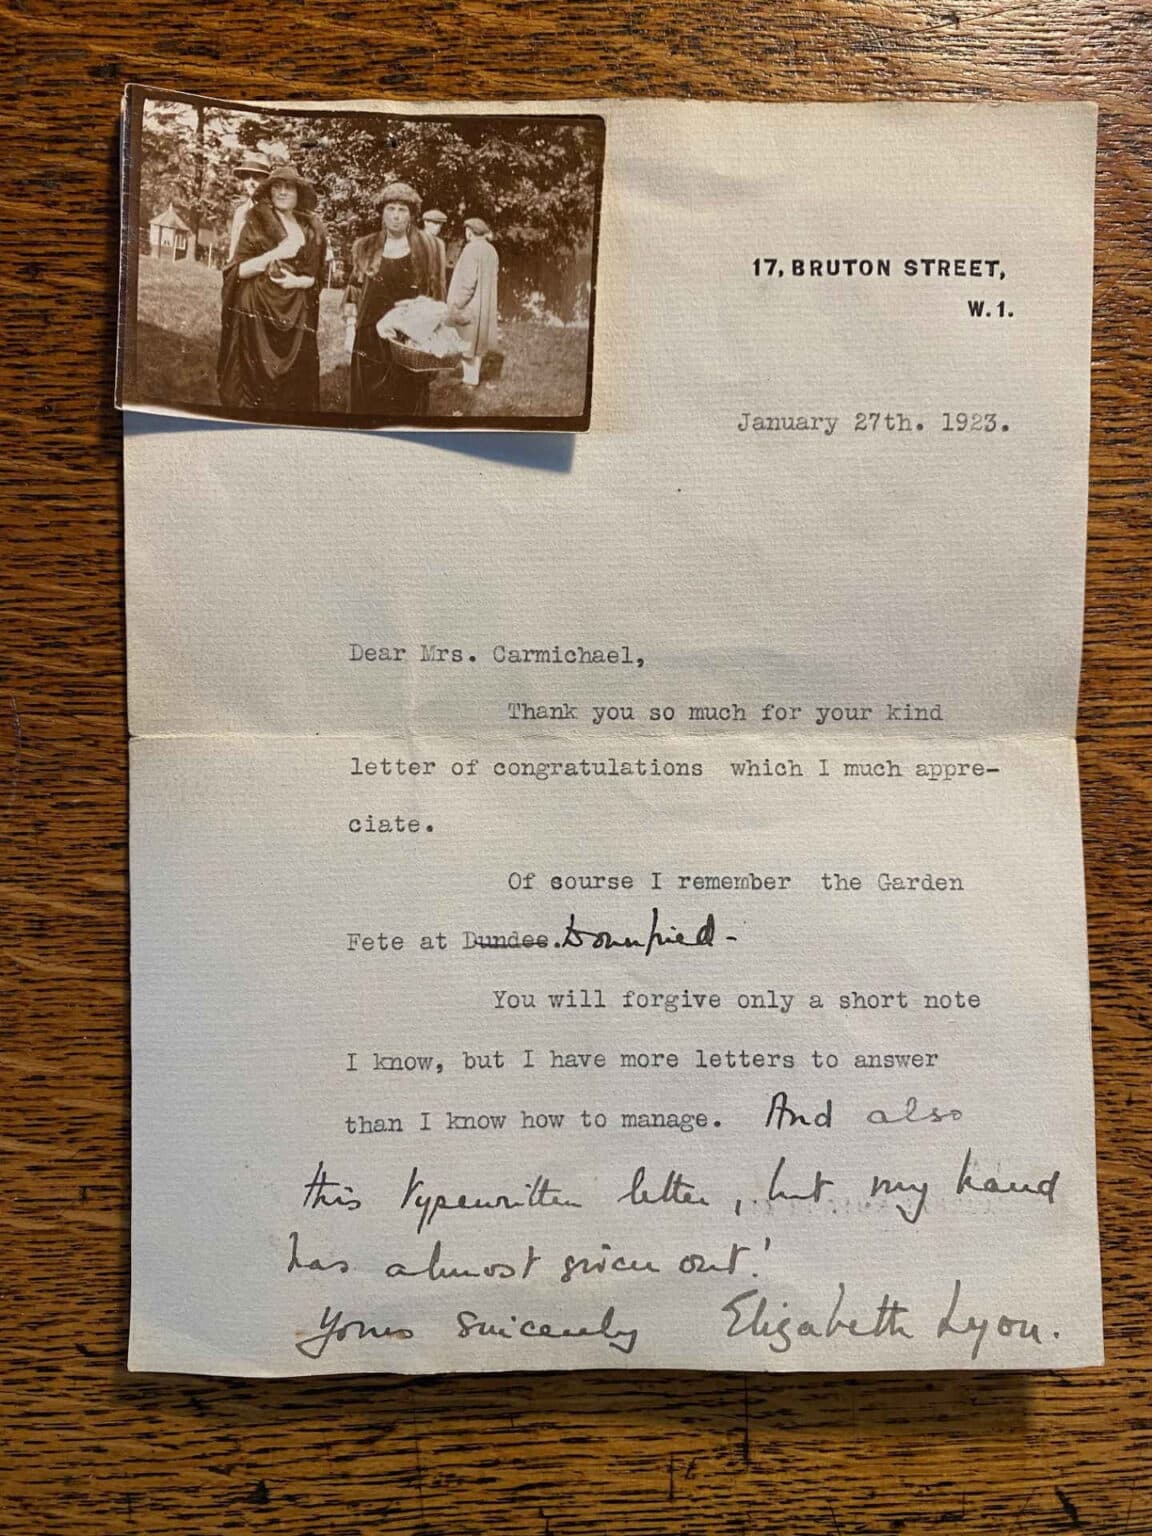 17, BRUTON STREET,
W.1.
January 27th. 1923.
Dear Mrs. Carmichael,
Thank you so much for your kind
letter of congratulations which I much appre-
ciate.
Of course I remember the Garden
Fete at Dundee. Downfield -
You will forgive only a short note
I know, but I have more letters to answer
than I know how to manage. And also
this typewritten letter, but my hand
has almost given out!
Yours sincerely Elizabeth Lyon.